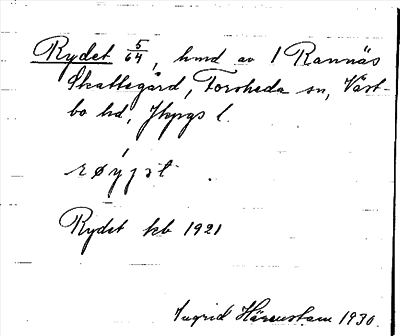 Rydet 5/64, hmd av 1 Rannäs
Skattegård, Forsheda sn, Väst-
bo hd, Jkpgs l.
Rydet kb 1921
Ingrid Härenstam 1930.